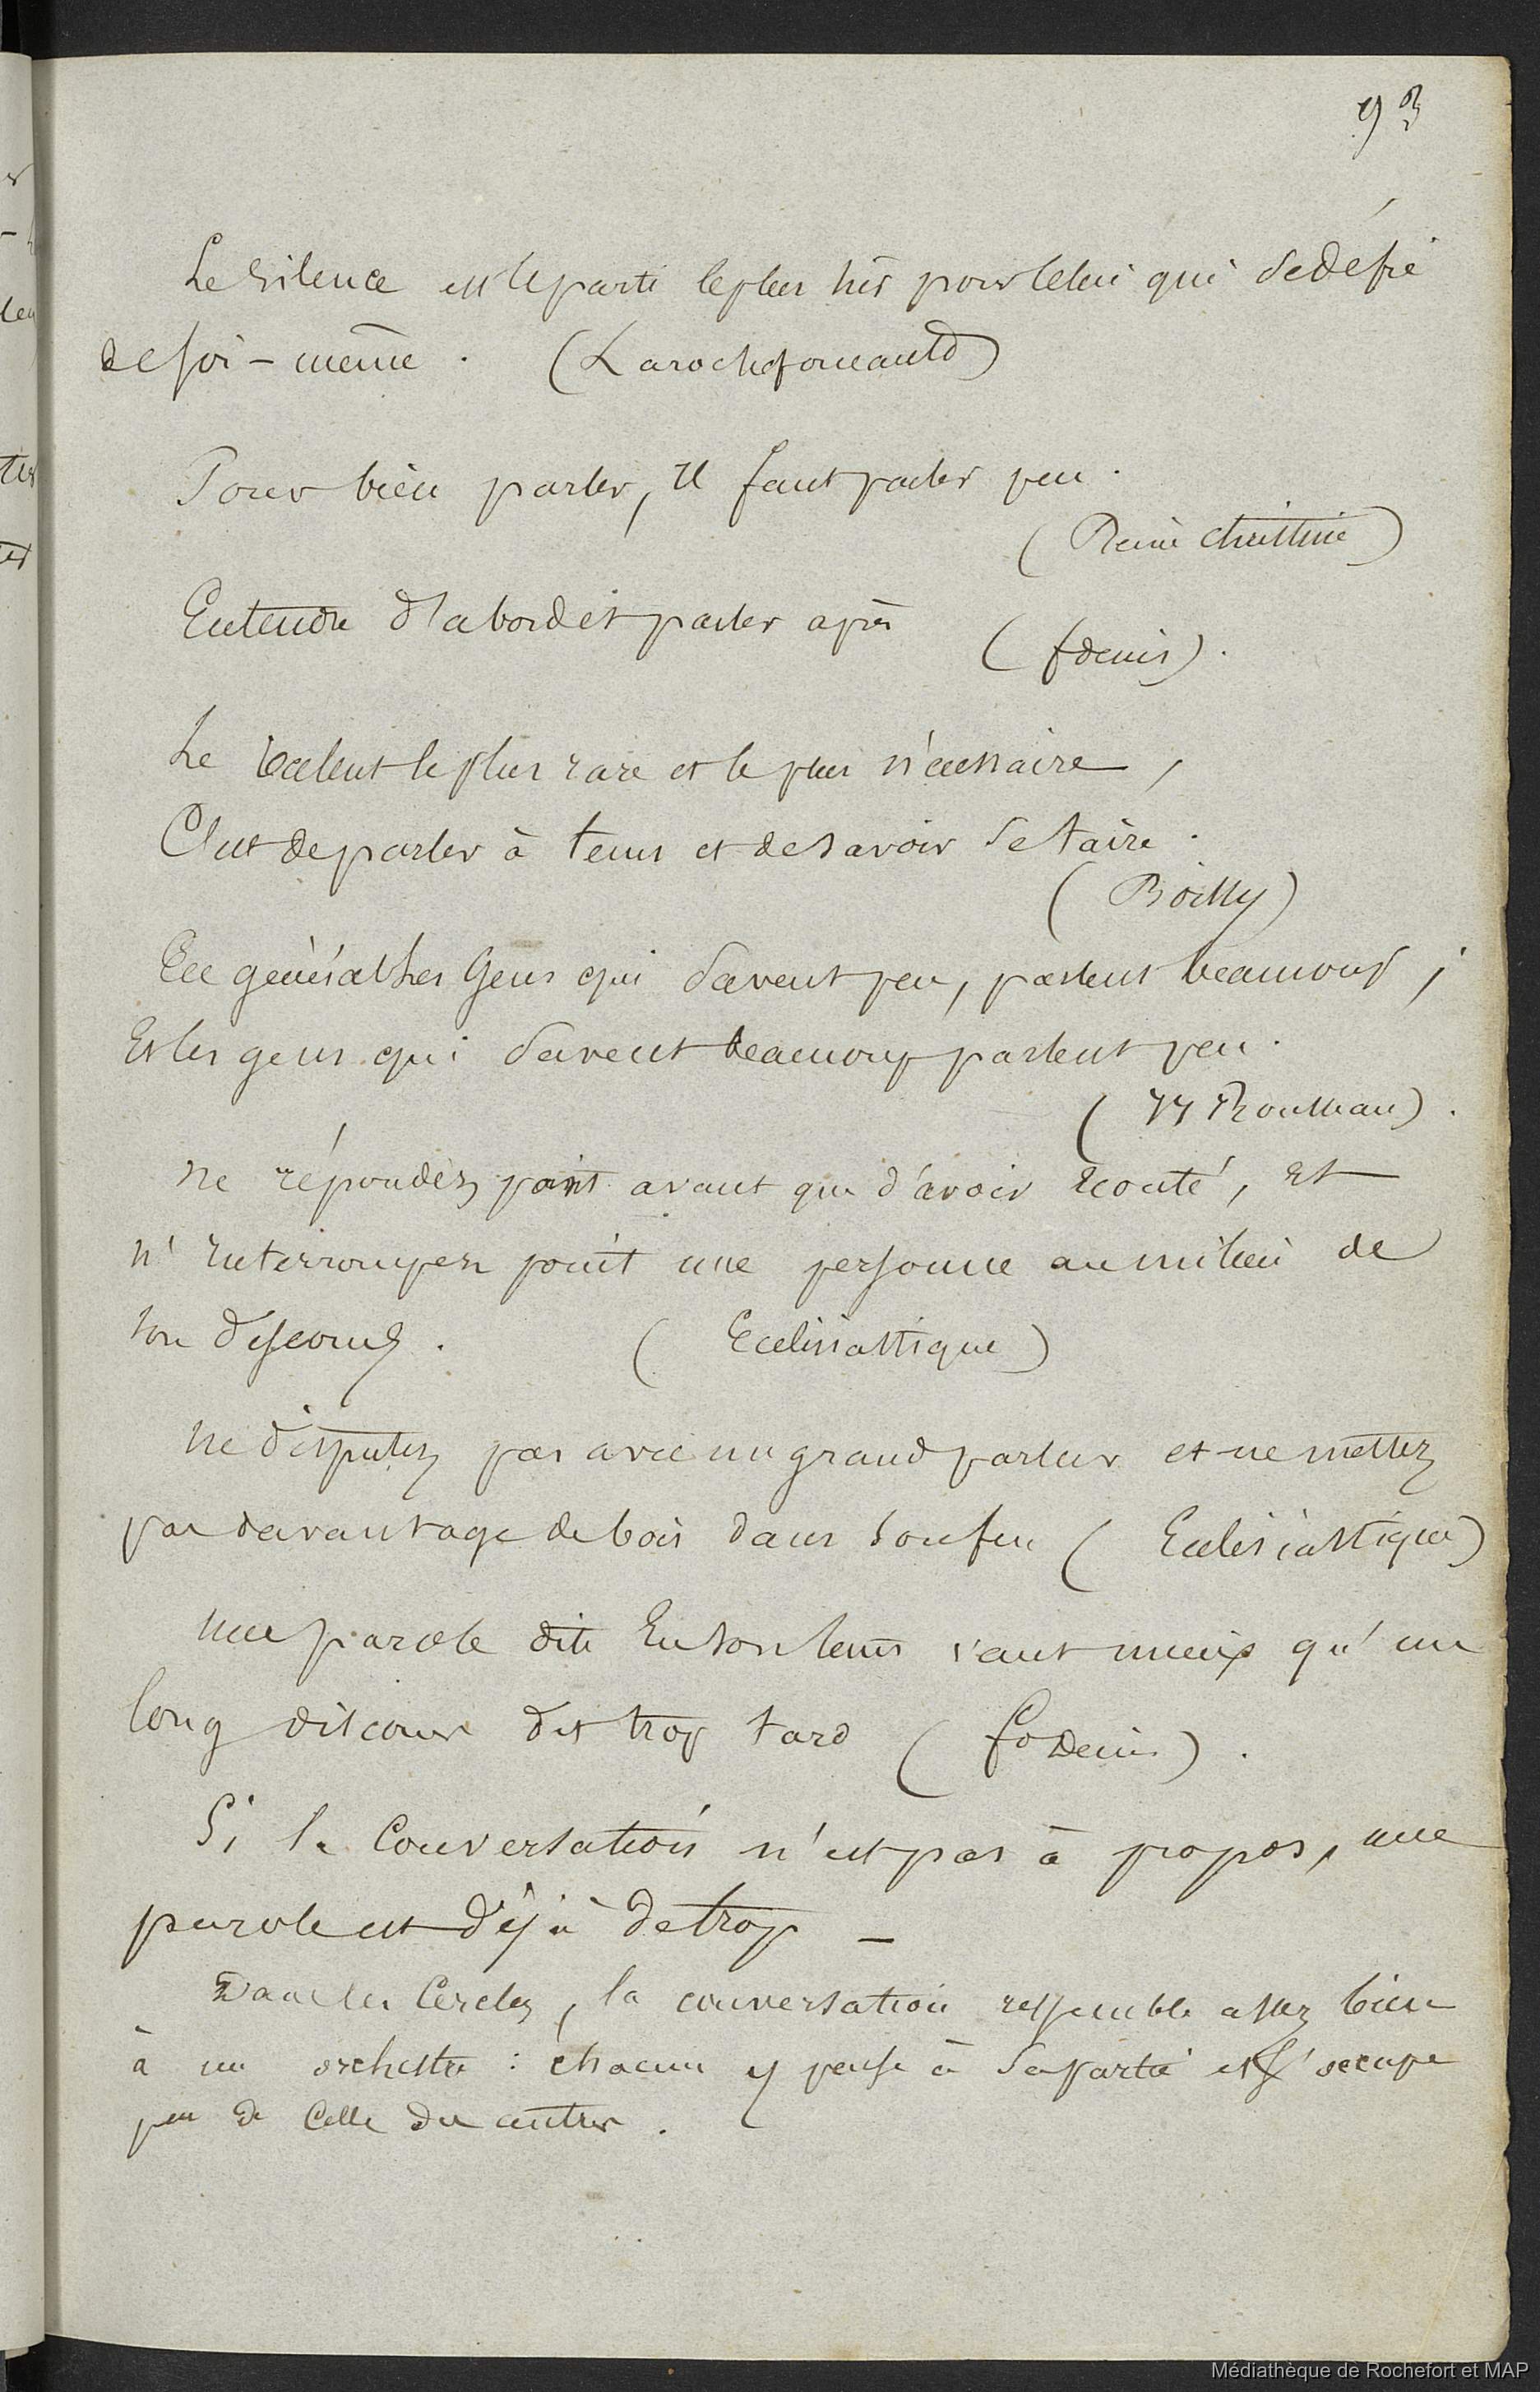 93
Le silence est le parti le plus sûr pour celui qui se défie
de soi-même. (Larochefoucauld)
Pour bien parler, il faut parler peu.
(Reine Christine)
Entendre d'abord et parler après
(fdenis).
Le talent le plus rare et le plus nécessaire,
C'est de parler à tems et de savoir se taire.
(Boilly)
En général les Gens qui savent peu, parlent beaucoup;
Et les gens qui savent beaucoup parlent peu.
(JJ Rousseau).
Ne répondez point avant que d'avoir écouté, et
n'interrompez point une personne au milieu de
son discours. (Ecclésiastique)
Ne disputez pas avec un grand parleur et ne mettez
pas davantage de bois dans son feu (Ecclésiastique)
Une parole dite En son tems vaut mieux qu'un
long discours dit trop tard (fs Denis).
Si la Conversation n'est pas à propos, une
parole est déjà de trop –
Dans les Cercles, la conversation ressemble assez bien
à un orchestre : chacun y pense à sa partie et s'occupe
peu de Celle des autres.
Médiathèque de Rochefort et MAP